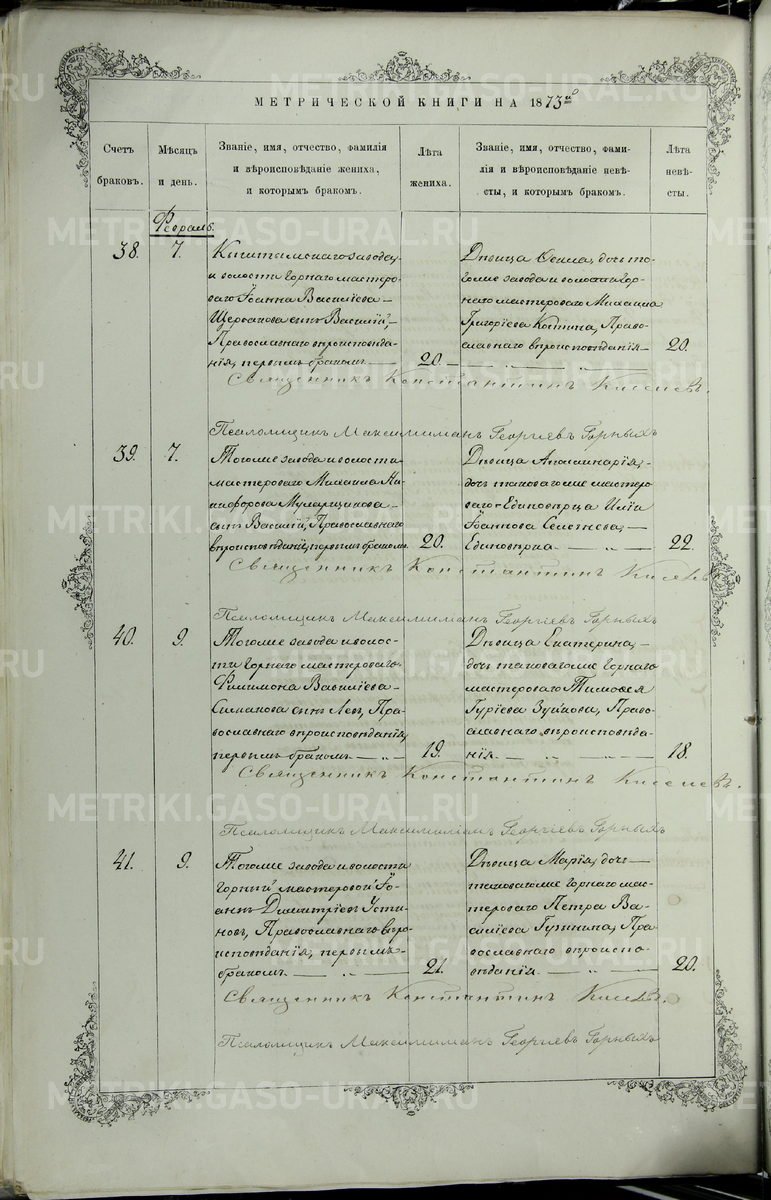 МЕТРИЧЕСКОЙ КНИГИ НА 1873й
Счетъ браковъ.
Мѣсяцъ и день.
Званіе, имя, отчество, фамилія и вѣроисповѣданіе жениха, и которымъ бракомъ.
Лѣта жениха.
Званіе, имя, отчество, фамилія и вѣроисповѣданіе невѣсты, и которымъ бракомъ.
Лѣта невѣсты.
Февраль.
38.
7.
Кыштымскаго завода
и волости Горнаго мастеро-
ваго Іоанна Василіева
Щербакова сынъ Василій,
Православнаго вѣроисповѣда-
нія, первымъ бракомъ
20.
Дѣвица Ѳекла, дочь то-
гоже завода и волости Гор-
наго мастероваго Михаила
Григоріева Костина, Право-
славнаго вѣроисповѣданія
20.
Священникъ Константинъ Киселевъ.
Псаломщикъ Максимиліанъ Георгіевъ Горныхъ
39.
7.
Тогоже завода и волости
мастероваго Михаила Ни-
кифорова Мулярщикова
сынъ Василій, Православнаго
вѣроисповѣданія, первымъ бракомъ
20.
Дѣвица Аполлинарія,
дочь таковагоже мастеро-
ваго Единовѣрца Иліи
Іоаннова Селезнева,
Единовѣрка
22.
Священникъ Константинъ Киселевъ
Псаломщикъ Максимиліанъ Георгіевъ Горныхъ
40.
9.
Тогоже завода и волос-
ти Горнаго мастероваго
Филимона Василіева
Симакова сынъ Левъ, Пра-
вославнаго вѣроисповѣданія,
первымъ бракомъ
19.
Дѣвица Екатерина,
дочь таковагоже Горнаго
мастероваго Тимоѳея
Гуріева Зуйкова, Право-
славнаго вѣроисповѣда-
нія
18.
Священникъ Константинъ Киселевъ.
Псаломщикъ Максимиліанъ Георгіевъ Горныхъ
41.
9.
Тогоже завода и волости
Горный мастеровой Іо-
аннъ Димитріевъ Усти-
новъ, Православнаго вѣро-
исповѣданія, первымъ
бракомъ
21.
Дѣвица Марія, дочь
таковагоже Горнаго мас-
тероваго Петра Ва-
силіева Гузынина, Пра-
вославнаго вѣроиспо-
вѣданія
20.
Священникъ Константинъ Киселевъ.
Псаломщикъ Максимиліанъ Георгіевъ Горныхъ
METRIKI.GASO-URAL.RU